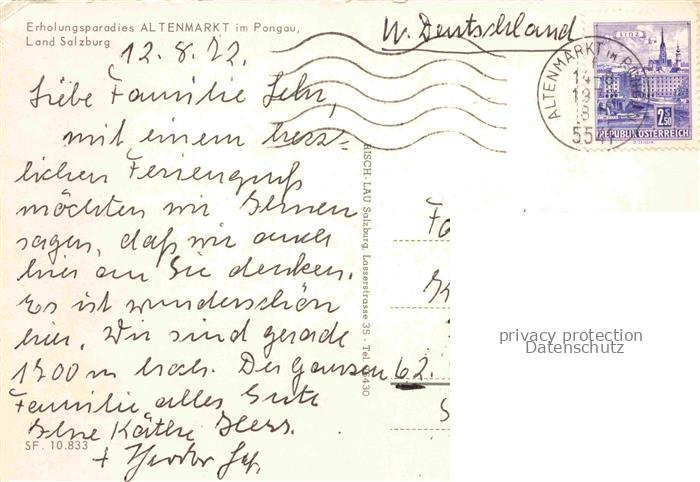 Erholungsparadies ALTENMARKT im Pongau,
Land Salzburg
12.8.72.
Liebe Familie
mit einem herz-
lichen Feriengruß
möchten wir Ihnen
sagen, daß wir auch
hier an Sie denken.
Es ist wunderschön
hier. Wir sind gerade
1700 m hoch. Der ganzen
Familie alles Gute
Ihre Käthe
+ Theodor
SF. 10.833
RISCH-LAU Salzburg, Lasserstrasse 35 - Tel.
W. Deutschland
LINZ
2.50
REPUBLIK ÖSTERREICH
ALTENMARKT IM
5541
62.
privacy protection
Datenschutz